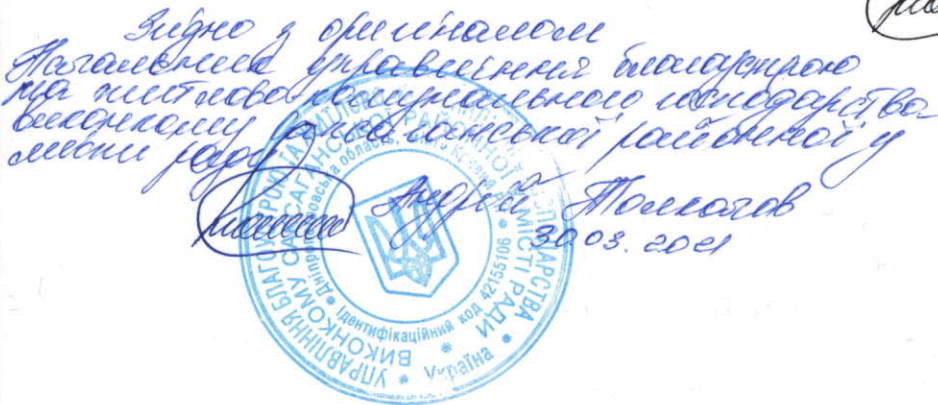 Згідно з оригіналом
Начальник управління благоустрою
та житлово-комунального господарства
виконкому Саксаганської районної у
місті ради
Андрій Толкачов
30.03.2021
УПРАВЛІННЯ БЛАГОУСТРОЮ ТА ЖИТЛОВО ГОСПОДАРСТВА
ВИКОНКОМУ САКСАГАНСЬКОЇ РАЙОННОЇ У МІСТІ РАДИ
Дніпропетровська область, місто Кривий
Ідентифікаційний код 42155106
Україна